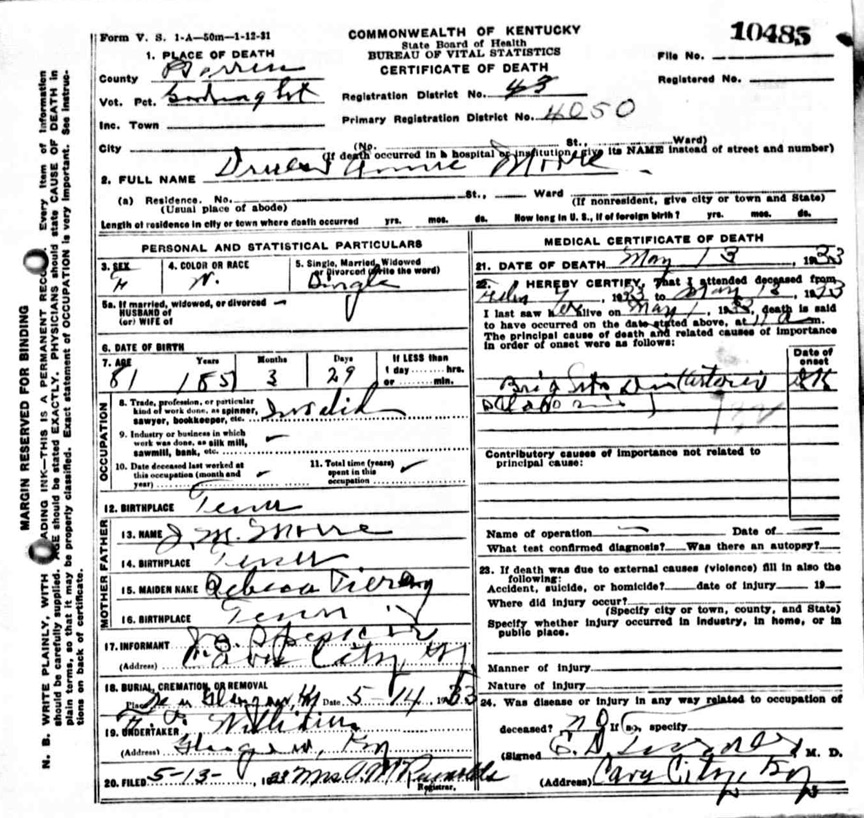 10485
Form V. S. 1-A—50m—1-12-31
COMMONWEALTH OF KENTUCKY
State Board of Health
BUREAU OF VITAL STATISTICS
CERTIFICATE OF DEATH
File No.
Registered No.
1. PLACE OF DEATH
County Barren
Vot. Pct.
Inc. Town
City
Registration District No. 43
Primary Registration District No. 4050
(No. St., Ward)
(If death occurred in a hospital or institution, give its NAME instead of street and number)
2. FULL NAME Annie Moore
(a) Residence. No. St., Ward
(Usual place of abode) (If nonresident, give city or town and State)
Length of residence in city or town where death occurred yrs. mos. ds. How long in U. S., if of foreign birth? yrs. mos. ds.
PERSONAL AND STATISTICAL PARTICULARS
3. SEX F
4. COLOR OR RACE W.
5. Single, Married, Widowed or Divorced (Write the word) Single
5a. If married, widowed, or divorced
HUSBAND of
(or) WIFE of
6. DATE OF BIRTH
7. AGE Years Months Days If LESS than
1 day hrs.
or min.
81 185 3 29
OCCUPATION
8. Trade, profession, or particular
kind of work done, as spinner,
sawyer, bookkeeper, etc. Invalid
9. Industry or business in which
work was done, as silk mill,
sawmill, bank, etc.
10. Date deceased last worked at
this occupation (month and
year)
11. Total time (years)
spent in this
occupation
12. BIRTHPLACE Tenn
FATHER
13. NAME J. M. Moore
14. BIRTHPLACE Tenn
MOTHER
15. MAIDEN NAME Rebeca
16. BIRTHPLACE Tenn
17. INFORMANT
(Address) Cave City, Ky
18. BURIAL, CREMATION, OR REMOVAL
Place Glasgow, Ky Date 5 14 1933
19. UNDERTAKER
(Address) Glasgow, Ky
20. FILED 5-13- 1933 Mrs A. M. Reynolds
Registrar.
MEDICAL CERTIFICATE OF DEATH
21. DATE OF DEATH May 13, 1933
22. I HEREBY CERTIFY, That I attended deceased from
1933 to May 13, 1933
I last saw her alive on May 1, 1933, death is said
to have occurred on the date stated above, at 11 a m.
The principal cause of death and related causes of importance
in order of onset were as follows:
Date of
onset
Contributory causes of importance not related to
principal cause:
Name of operation — Date of —
What test confirmed diagnosis? Was there an autopsy?
23. If death was due to external causes (violence) fill in also the
following:
Accident, suicide, or homicide? date of injury 19
Where did injury occur?
(Specify city or town, county, and State)
Specify whether injury occurred in industry, in home, or in
public place.
Manner of injury
Nature of injury
24. Was disease or injury in any way related to occupation of
deceased? no If so, specify
(Signed M. D.
(Address) Cave City, Ky
MARGIN RESERVED FOR BINDING
N. B. WRITE PLAINLY, WITH ADING INK—THIS IS A PERMANENT RECO Every item of information
should be carefully supplied. AGE should be stated EXACTLY. PHYSICIANS should state CAUSE OF DEATH in
plain terms, so that it may be properly classified. Exact statement of OCCUPATION is very important. See instruc-
tions on back of certificate.